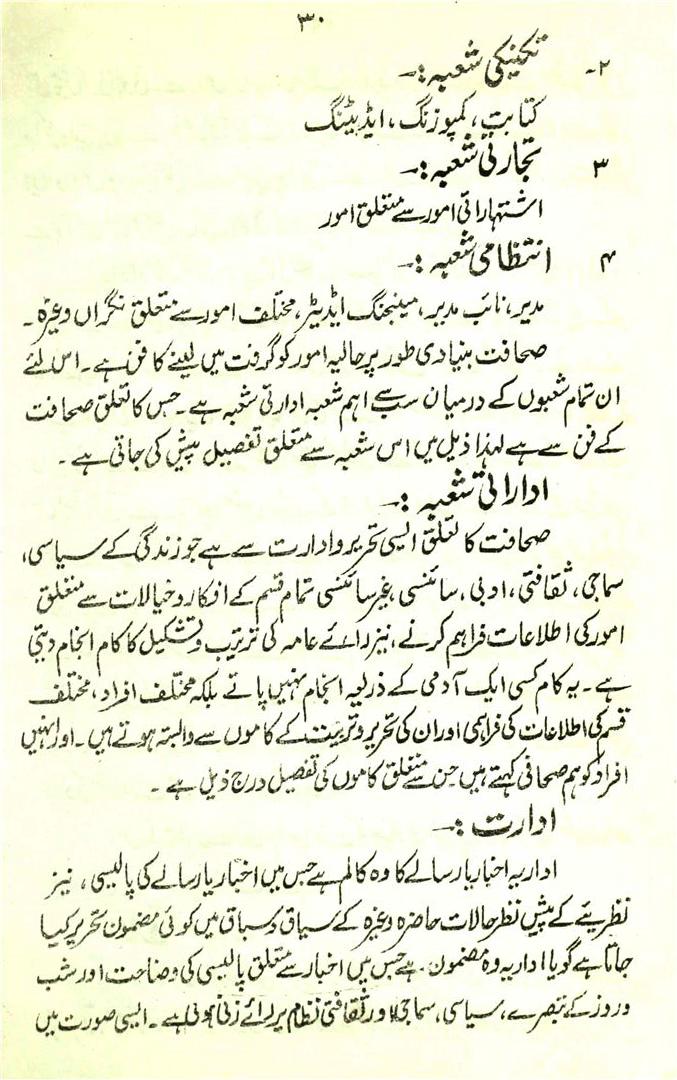 ۳۰
۲۔ تکنیکی شعبہ :۔
کتابت، کمپوزنگ، ایڈیٹنگ
۳ تجارتی شعبہ :۔
اشتہاراتی امور سے متعلق امور
۴ انتظامی شعبہ :۔
مدیر، نائب مدیر، مینجنگ ایڈیٹر، مختلف امور سے متعلق نگراں وغیرہ ۔
صحافت بنیادی طور پر حالیہ امور کو گرفت میں لینے کا فن ہے ۔ اس لئے
ان تمام شعبوں کے درمیان سب سے اہم شعبہ ادارتی شعبہ ہے ۔ جس کا تعلق صحافت
کے فن سے ہے لہذا ذیل میں اس شعبہ سے متعلق تفصیل پیش کی جاتی ہے ۔
ادارتی شعبہ :۔
صحافت کا تعلق ایسی تحریر و ادارت سے ہے جو زندگی کے سیاسی،
سماجی، ثقافتی، ادبی، سائنسی، غیر سائنسی تمام قسم کے افکار و خیالات سے متعلق
امور کی اطلاعات فراہم کرنے، نیز رائے عامہ کی ترتیب و تشکیل کا کام انجام دیتی
ہے ۔ یہ کام کسی ایک آدمی کے ذریعہ انجام نہیں پاتے بلکہ مختلف افراد، مختلف
قسم کی اطلاعات کی فراہمی اور ان کی تحریر و تربیت کے کاموں سے وابستہ ہوتے ہیں ۔ اور انہیں
افراد کو ہم صحافی کہتے ہیں جن سے متعلق کاموں کی تفصیل درج ذیل ہے ۔
ادارت :۔
اداریہ اخبار یا رسالے کا وہ کالم ہے جس میں اخبار یا رسالے کی پالیسی، نیز
نظریئے کے پیش نظر حالات حاضرہ وغیرہ کے سیاق و سباق میں کوئی مضمون تحریر کیا
جاتا ہے گویا اداریہ وہ مضمون ۔ ہے جس میں اخبار سے متعلق پالیسی کی وضاحت اور شب
و روز کے تبصرے، سیاسی، سماجی اور ثقافتی نظام پر رائے زنی ہوتی ہے ۔ ایسی صورت میں